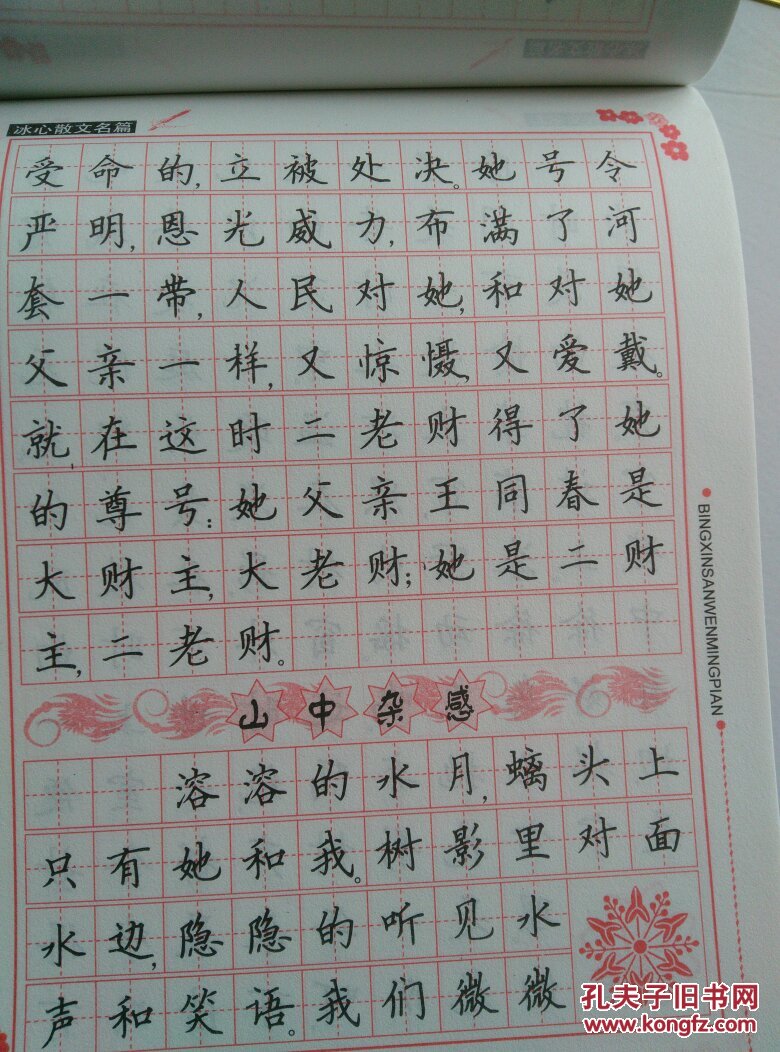 冰心散文名篇
受命的,立被处决。她号令
严明,恩光威力,布满了河
套一带,人民对她,和对她
父亲一样,又惊慑,又爱戴。
就在这时二老财得了她
的尊号:她父亲王同春是
大财主,大老财;她是二财
主,二老财。
山中杂感
溶溶的水月,螭头上
只有她和我。树影里对面
水边,隐隐的听见水
声和笑语。我们微微
BINGXINSANWENMINGPIAN
孔夫子旧书网
www.kongfz.com